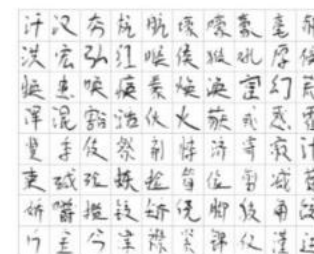 汗 汉 夯 杭 航 壕 嚎 豪 毫
洪 宏 弘 红 喉 侯 猴 吼 厚
换 患 唤 痪 豢 焕 涣 宦 幻
浑 混 豁 活 伙 火 获 或 惑
季 伎 祭 剂 悸 济 寄 寂 计
柬 碱 硷 拣 捡 简 俭 剪 减
娇 嚼 搅 铰 矫 侥 脚 狡 角 饺
今 津 襟 紧 锦 仅 谨 进